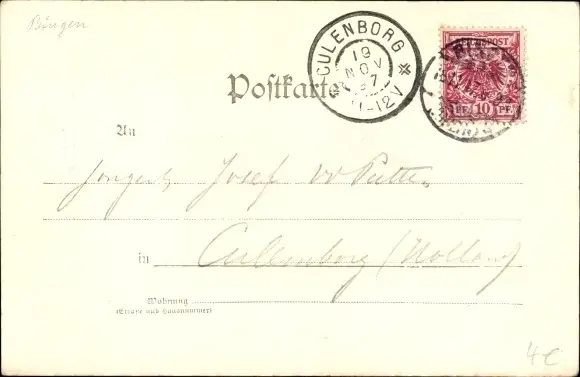 Bingen
CULENBORG
19
NOV
97
11-12V
REICHSPOST
10 PF.
Postkarte
An
Josef
in
Culenborg (Holland)
Wohnung
(Straße und Hausnummer)
4€